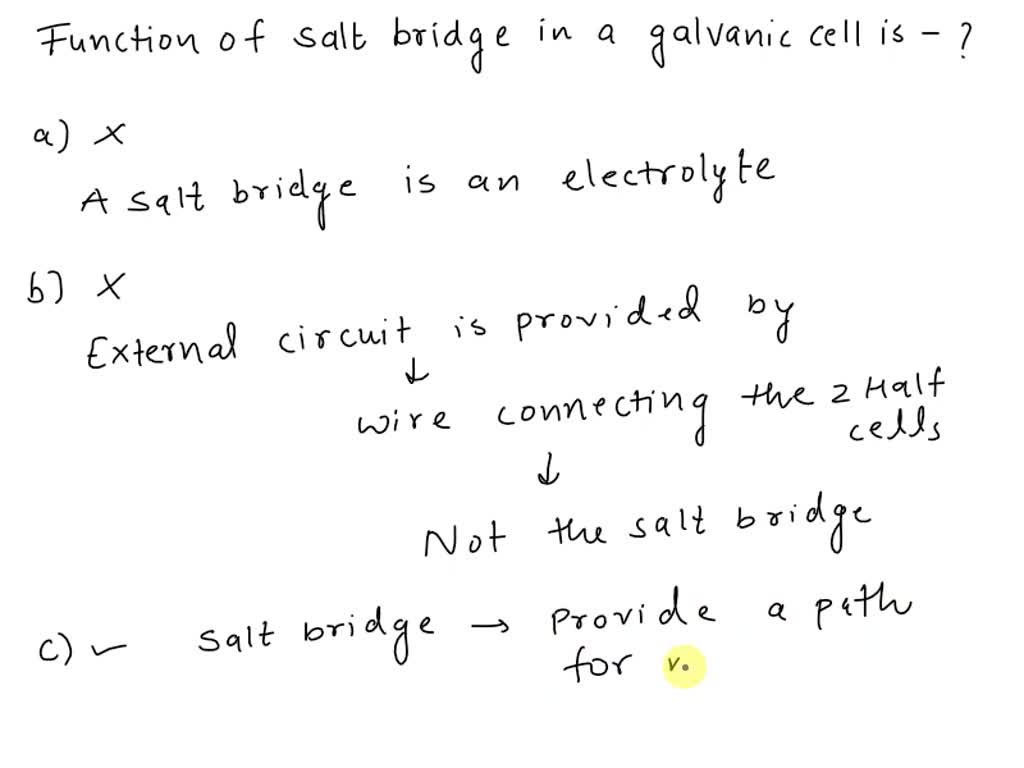 Function of salt bridge in a galvanic cell is - ?
a) X
A salt bridge is an electrolyte
b) X
External circuit is provided by
↓
wire connecting the 2 Half
cells
↓
Not the salt bridge
c) ✓ salt bridge → Provide a path
for